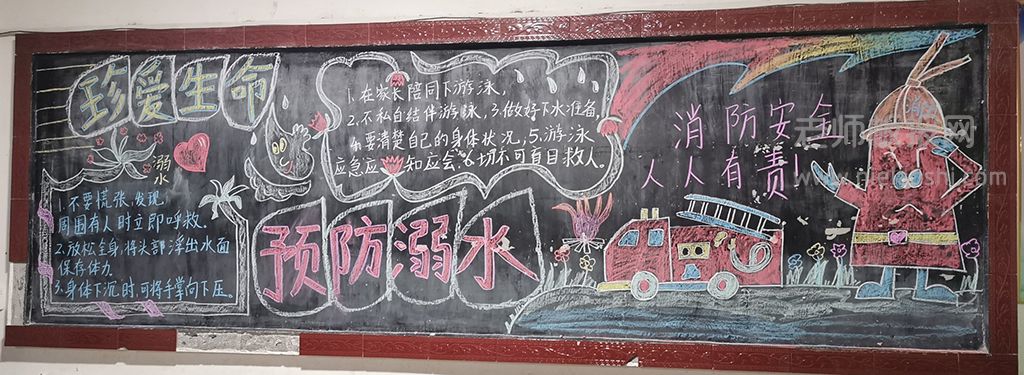 珍爱生命
溺水
1.不要慌张,发现
周围有人时立即呼救.
2.放松全身,将头部浮出水面
保存体力.
3.身体下沉时,可将手掌向下压。
1.在家长陪同下游泳,
2.不私自结伴游泳,3.做好下水准备,
4.要清楚自己的身体状况,5.游泳
应急应知应会,6.切不可盲目救人。
预防溺水
消防安全
人人有责!